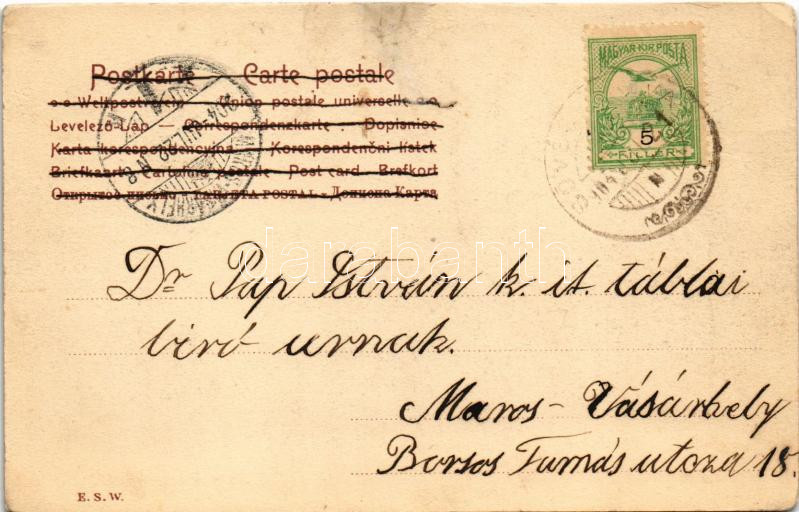 Postkarte Carte postale
Weltpostverein Union postale universelle
Levelező-Lap — Correspondenzkarte. Dopisnice
Karta korespondencyjna Korespondenční listek
Briefkaart Cartolina postale Post card. Brefkort
Открытое письмо TARJETA POSTAL - Дописна Карта
MAGYAR·KIR·POSTA
5
FILLÉR
SZOVÁTA
MAROSVÁSÁRHELY
darabanth
Dr Pap István k. it. táblai
biró urnak.
Maros-Vásárhely
Borsos Tamás utcza 18.
E. S. W.